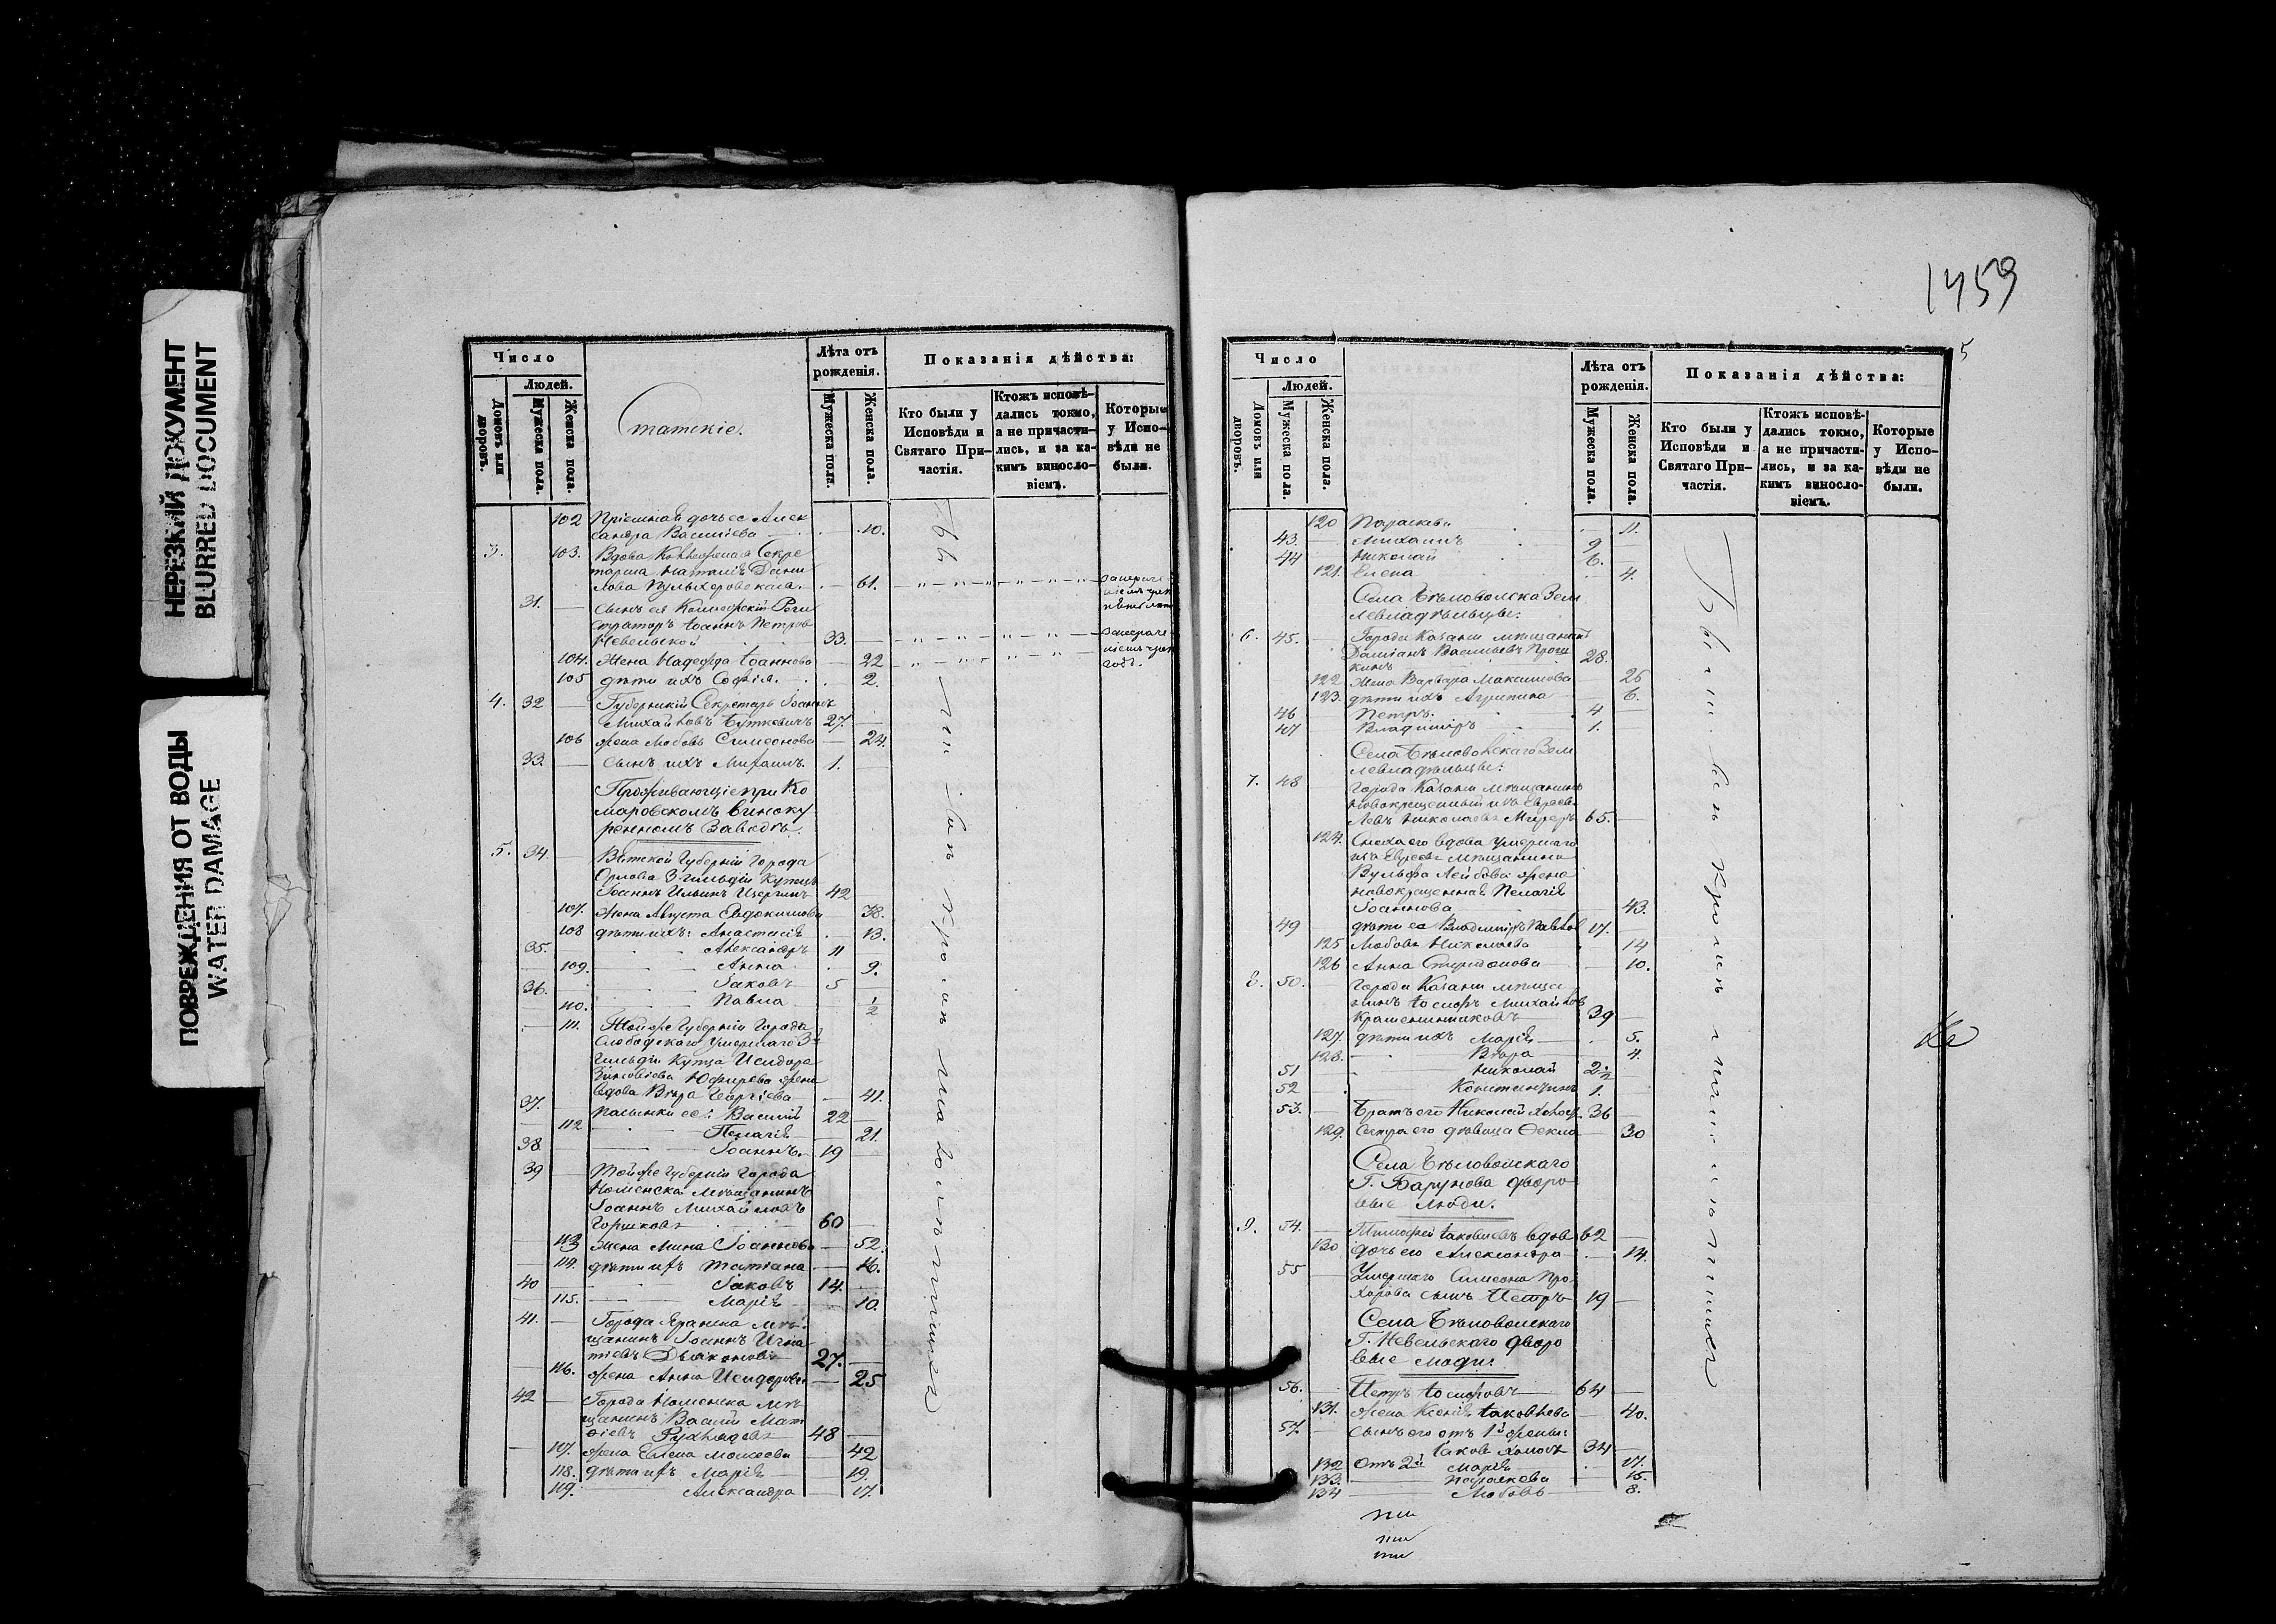 НЕРЕЗКИЙ ДОКУМЕНТ
BLURRED DOCUMENT
ПОВРЕЖДЕНИЯ ОТ ВОДЫ
WATER DAMAGE
Число
Людей.
Домовъ или дворовъ.
Мужеска пола.
Женска пола.
Статскіе.
Лѣта отъ рожденія.
Мужеска пола.
Женска пола.
Показанія дѣйства:
Кто были у Исповѣди и Святаго Причастія.
Ктожъ исповѣдались токмо, а не причастились, и за какимъ винословіемъ.
Которые у Исповѣди не были.
102 Пріемная дочь ее Алек
сандра Василіева 10.
3. 103. Вдова Коллежская Секре
тарша Наталія Дани
лова Пульхеровская. 61.
31. Сынъ ея Коллежскій Реги
страторъ Іоаннъ Петровъ
Невельской 33.
104. Жена Надежда Іоаннова 22
105 дѣти ихъ Софія. 2.
4. 32 Губернскій Секретарь Іоаннъ
Михайловъ Буткевичъ 27.
106 жена Любовь Симеонова 24.
33. Сынъ ихъ Михаилъ. 1.
Проживающіе при Ко
маровскомъ виноку
ренномъ Заводѣ.
5. 34. Вятской Губерніи Города
Орлова 3 гильдіи Купецъ
Іоаннъ Ильинъ 42
107. Жена Августа Евдокимова 38.
108 дѣти ихъ: Анастасія 13.
35. Александръ 11
109. Анна 9.
36. Іаковъ 5
110. Павла 1/2
111. Той же Губерніи Города
Слободскаго умершаго 3й
гильдіи Купца Исидора
жена
вдова Вѣра Георгіева 41.
37. Пасынки ее: Василій 22
112 Пелагія 21.
38. Іоаннъ. 19
39 Той же Губерніи Города
Нолинска Мѣщанинъ
Іоаннъ Михайловъ
Горшковъ 60
113 жена Іоаннова 52.
114. дѣти ихъ Татіана 16.
40 Іаковъ 14.
115. Марія 10.
41. Города Яранска Мѣ
щанинъ Іоаннъ Игна
тіевъ Дьяконовъ 27.
116. жена Анна Исидорова 25
42 Города Нолинска мѣ
щанинъ Василій Мат
ѳіевъ 48
117. жена Елена Моисеева 42
118. дѣти ихъ Марія 19.
119. Александра 17.
Были у исповѣди
1459
5
Число
Людей.
Домовъ или дворовъ.
Мужеска пола.
Женска пола.
Лѣта отъ рожденія.
Мужеска пола.
Женска пола.
Показанія дѣйства:
Кто были у Исповѣди и Святаго Причастія.
Ктожъ исповѣдались токмо, а не причастились, и за какимъ винословіемъ.
Которые у Исповѣди не были.
120 Параскева 11.
43. Михаилъ 9
44 Николай 6.
121. Елена 4.
Села Бѣловолжска Зем
левладѣльцы:
6. 45. Города Казани мѣщанинъ
Даміанъ Васильевъ
28.
122 Жена Варвара Максимова 26
123. дѣти ихъ Агрипина 6.
46 Петръ. 4
47 Владиміръ 1.
Села Бѣловолжскаго Зем
левладѣльцы:
7. 48 Города Казани мѣщанинъ
новокрещенный изъ Евреевъ
Левъ Николаевъ 65.
124. Сноха его вдова умершаго
изъ Евреевъ мѣщанина
Вульфа Лейбова жена
новокрещенная Пелагія
Іоаннова 43.
49 дѣти ее Владиміръ Павлов 17.
125 Любовь Николаева 14
126 Анна Спиридонова 10.
8. 50. Города Казани мѣща
нинъ Іосифъ Михайлов
Крашенинниковъ 39
127. дѣти ихъ Марія 5.
128. Вѣра 4.
51 Николай 2 1/2
52 Константинъ 1.
53. Братъ его Николай холост 36
129. Сестра его дѣвица Ѳекла 30
Села Бѣловолжскаго
Г. Барунова дворо
вые люди.
9. 54. Тимофей Іаковлевъ вдов 62
130 дочь его Александра 14.
55 Умершаго Симеона Про
хорова сынъ Петръ 19
Села Бѣловолжскаго
Г. Невельскаго дворо
вые люди:
56. Петръ Іосифовъ 64
131. жена Ксенія Іаковлева 40.
57. Сынъ его отъ 1й жены:
Іаковъ холост 34
132 Отъ 2й Марія 17.
133. Параскева 15.
134 Любовь 8.